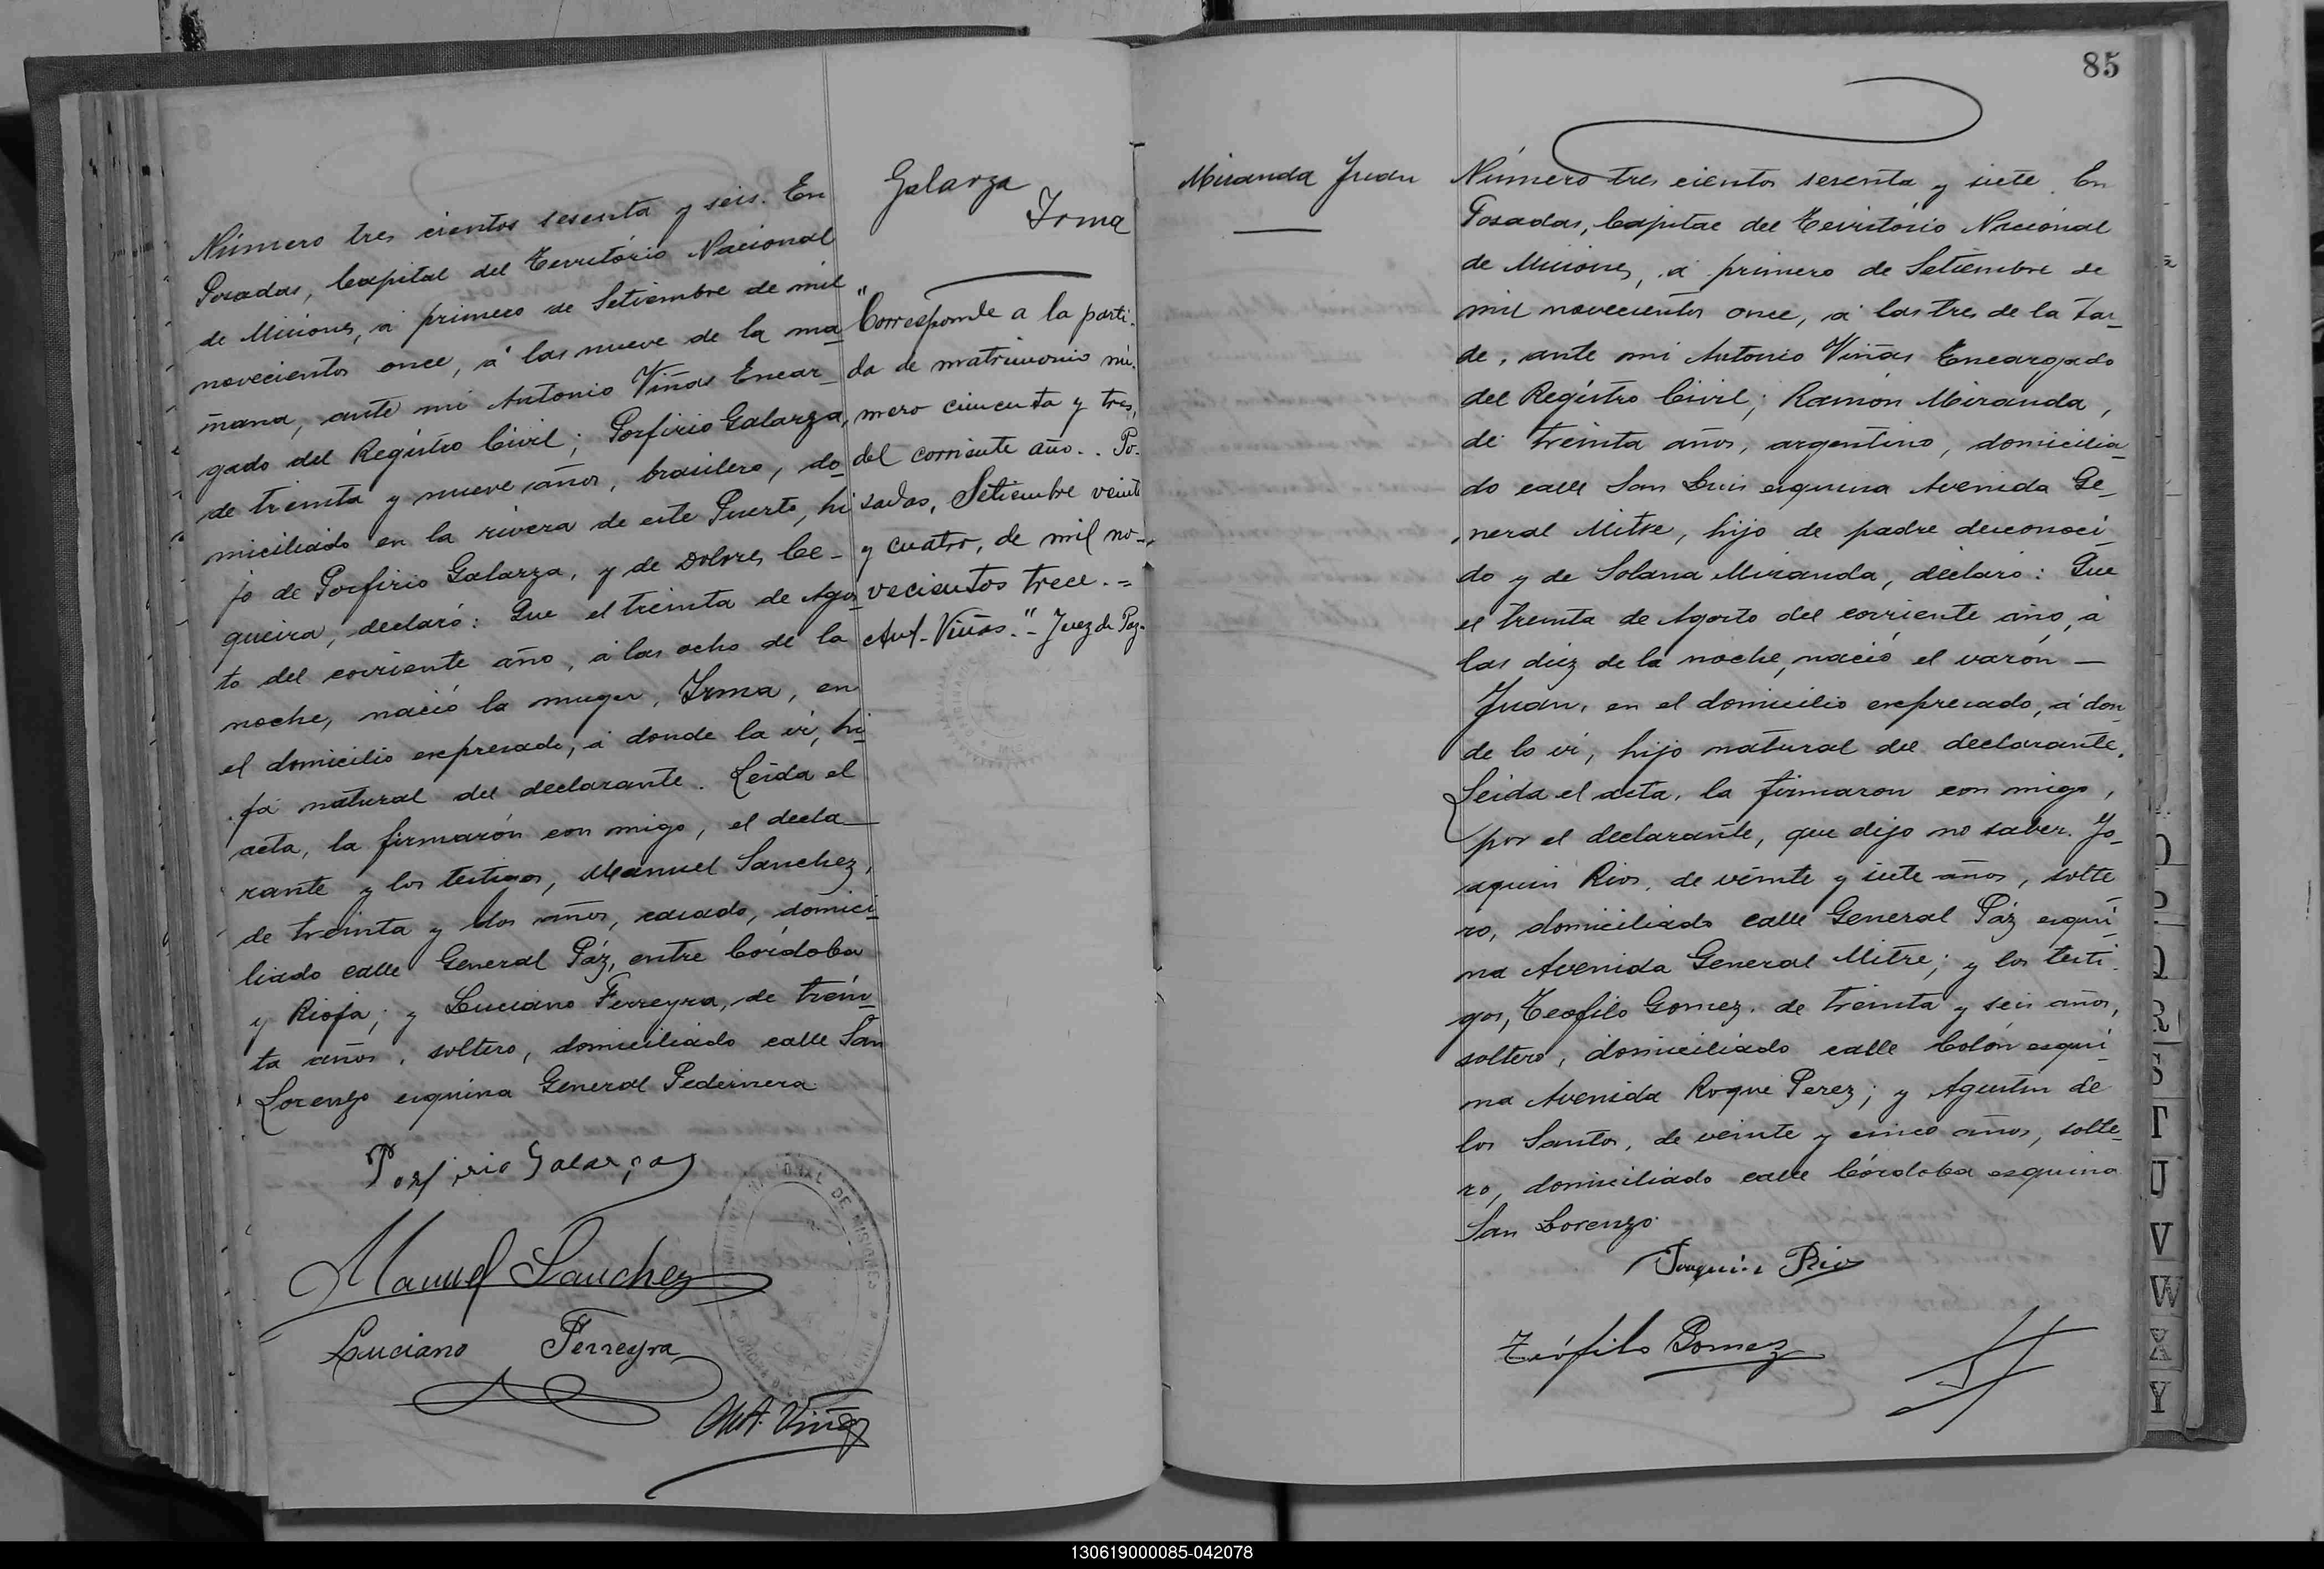 Número tres cientos sesenta y seis. En
Posadas, Capital del Território Nacional
de Misiones, á primero de Setiembre de mil
novecientos once, á las nueve de la ma
ñana, ante mi Antonio Viñas Encar
gado del Registro Civil; Porfirio Galarza,
de treinta y nueve años, brasilero, do
miciliado en la rivera de este Puerto, hi
jo de Porfirio Galarza, y de Dolores Ce-
queira, declaró: Que el treinta de Agos
to del corriente año, á las ocho de la
noche, nació la muger, Irma, en
el domicilio expresado, á donde la ví, hi
ja natural del declarante. Leida el
acta, la firmarón con migo, el decla
rante y los testigos, Manuel Sanchez,
de treinta y dos años, casado, domici
liado calle General Páz, entre Córdoba
y Rioja; y Luciano Ferreyra, de trein
ta años, soltero, domiciliado calle San
Lorenzo esquina General Pedernera
Porfirio Galarza
Manuel Sanchez
Luciano Ferreyra
Ant. Viñas
Galarza
Irma
"Corresponde a la parti-
da de matrimonio nú-
mero cincuenta y tres,
del corriente año.. Po-
sadas, Setiembre veinti
y cuatro, de mil no-
vecientos trece.=
Ant. Viñas."- Juez de Paz.
85
Miranda Juan
Número tres cientos sesenta y siete. En
Posadas, Capital del Território Nacional
de Misiones, á primero de Setiembre de
mil novecientos once, á las tres de la tar
de, ante mi Antonio Viñas Encargado
del Registro Civil; Ramón Miranda,
de treinta años, argentino, domicilia
do calle San Luis esquina Avenida Ge
neral Mitre, hijo de padre desconoci
do y de Solana Miranda, declaró: Que
el treinta de Agosto del corriente año, á
las diez de la noche, nació el varón —
Juan, en el domicilio expresado, á don
de lo ví, hijo natural del declarante.
Leida el acta, la firmaron con migo,
por el declarante, que dijo no saber. Jo
aquin Rios, de veinte y siete años, solte
ro, domiciliado calle General Páz esqui
na Avenida General Mitre; y los testi
gos, Teofilo Gomez, de treinta y seis años,
soltero, domiciliado calle Colón esqui
na Avenida Roque Perez; y Agustin de
los Santos, de veinte y cinco años, solte
ro, domiciliado calle Córdoba esquina
San Lorenzo
Joaquin Rios
Teófilo Gomez
P
Q
R
S
T
U
V
W
X
Y
130619000085-042078